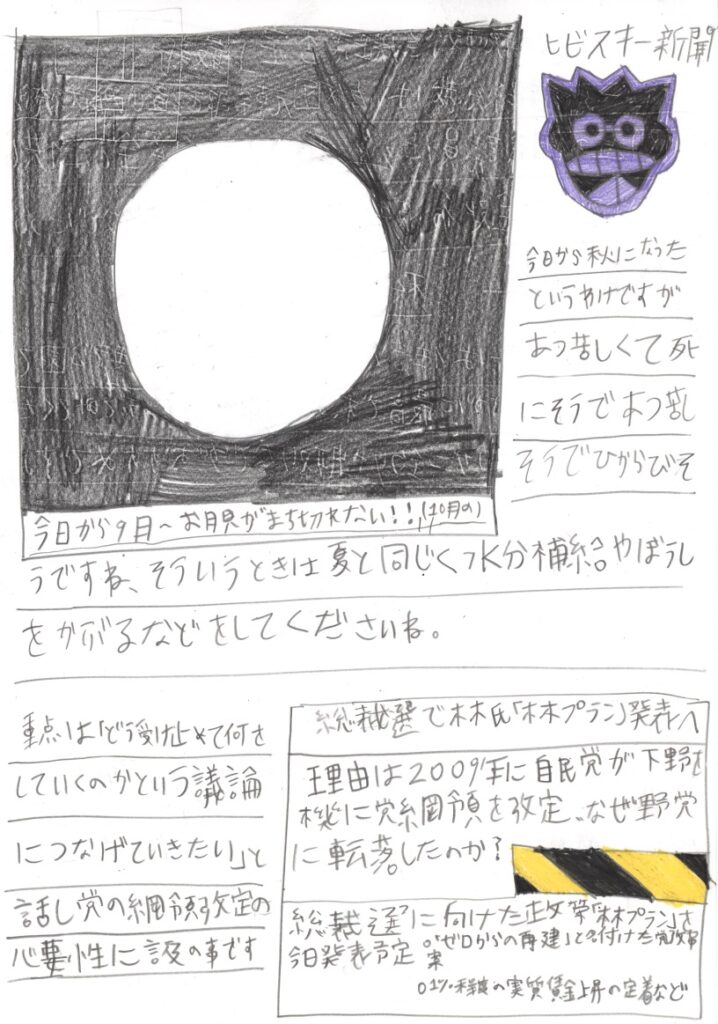 ヒビスキー新聞
今日から秋になった
というわけですが
あつ苦しくて死
にそうであつ苦し
そうでひからびそ
今日から9月〜お月見がまち切れない!!(10月の)
うですね、そういうときは夏と同じく水分補給やぼうし
をかぶるなどをしてくださいね。
重点は「どう受け止めて何を
していくのかという議論
につなげていきたい」と
話し党の綱領改定の
必要性に言及の事です
総裁選で林氏「林プラン」発表へ
理由は2009年に自民党が下野を
機に党綱領を改定、なぜ野党
に転落したのか?
総裁選に向けた政策「林プラン」を
今日発表予定
○"ゼロからの再建"と名付けた党改革
案
○1%程度の実質賃金上昇の定着など